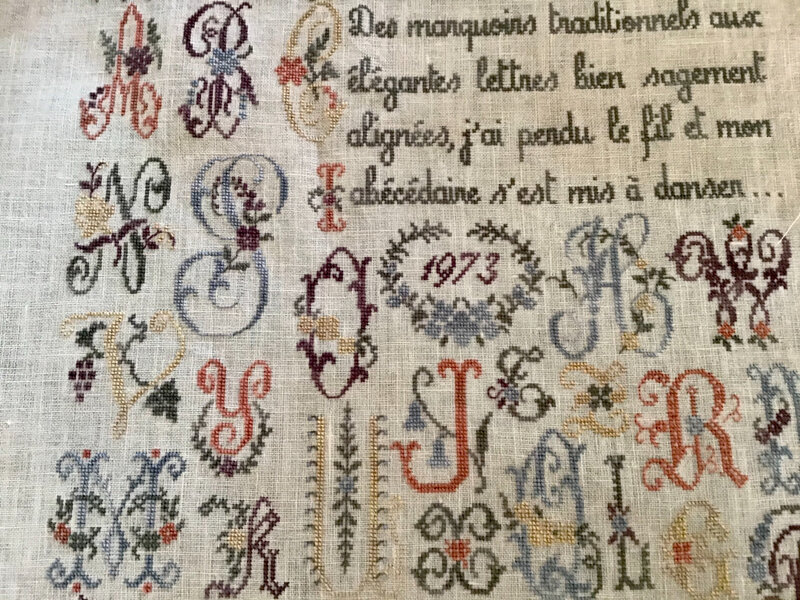 Des marquoirs traditionnels aux
élégantes lettres bien sagement
alignées, j'ai perdu le fil et mon
abécédaire s'est mis à danser...
1973